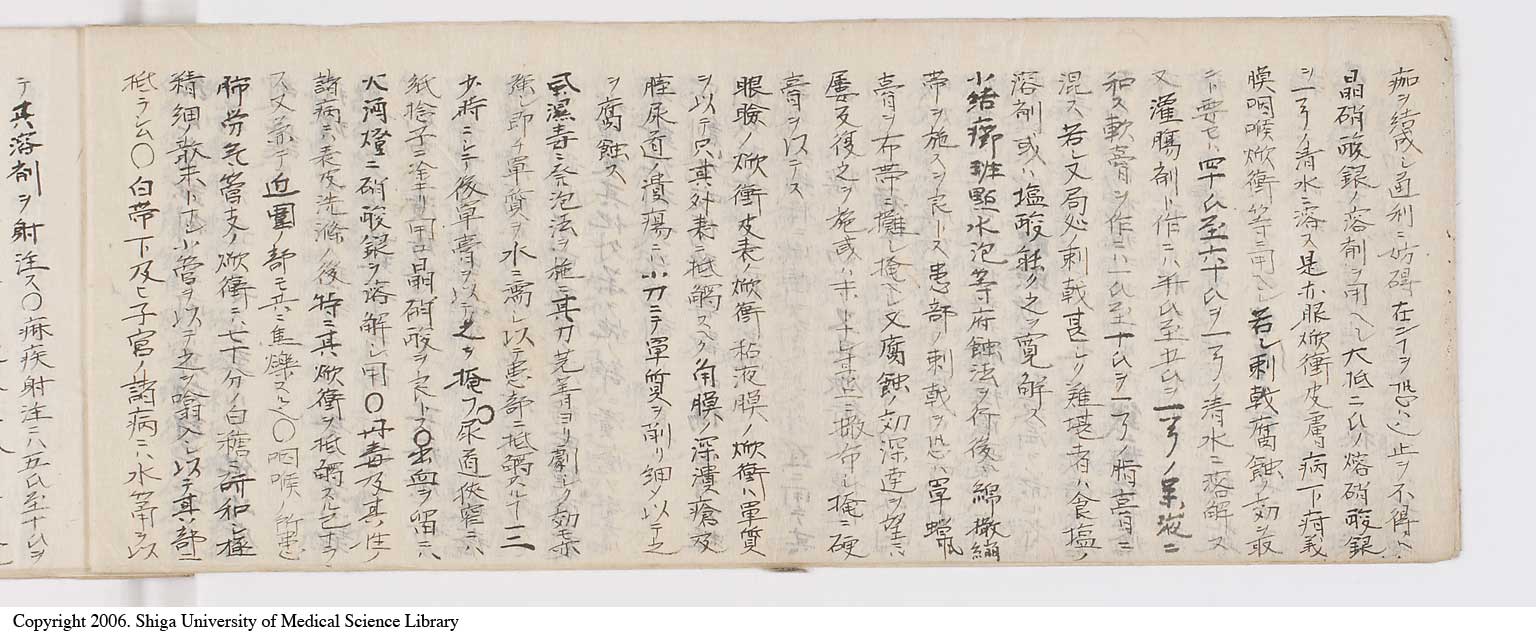 痂ヲ結成シ通利ニ妨碍在シヿヲ恐ハ止ヲ不得ハ
晶硝酸銀ノ溶剤ヲ用ヘシ大低二氏ノ熔硝酸銀
シ一弓ノ清水ニ溶ス是亦眼焮衝皮膚病下疳義
膜咽喉焮衝等ニ用ヘシ若シ刺戟腐蝕ノ効ヲ最
モ要セハ四十氏至六十氏ヲ一弓ノ清水ニ溶解ス
又灌腸剤ト作ニハ 氏至五氏ヲ一弓ノ 液ニ
和ス軟膏ヲ作ニハ一氏至十氏ヲ一弓ノ脂膏ニ
混ス若シ又局処ノ刺戟甚シク難堪者ハ食塩ノ
溶剤或ハ塩酸能ク之ヲ寛解ス
小結痂斑點水泡等腐蝕法ヲ行後ハ綿撒繃
帯ヲ施スヲ良トス患部ノ刺戟ヲ恐ハ単蠟
膏ヲ布帯ニ攤シ掩ヘシ又腐蝕ノ効深達ヲ望ニハ
屡反復之ヲ施或ハ末 ニ撒布シ掩ニ硬
膏ヲ以テス
眼瞼ノ焮衝皮表ノ焮衝粘液膜ノ焮衝ハ単質
ヲ以テ只其外表ニ抵觸スヘク角膜ノ深潰瘡及
膣尿道潰瘍ニハ小刀ニテ単質ヲ削リ細メ以テ之
ヲ腐蝕ス
風濕毒ニ發泡法ヲ施ニ其力芫菁ヨリ劇シク効モ亦
強シ即チ単質ヲ水ニ濡シ以テ患部ニ抵觸スル丁一二
少時ニシテ後単膏ヲ以テ之ヲ掩フ〇尿道侠窄ニハ
紙捻子ニ塗キリ用ロ晶硝酸ヲ良トス〇出血ヲ留ニハ
火酒燈ニ硝酸銀ヲ溶解シ用〇丹毒及其性ノ
諸病ニハ表皮洗滌ノ後特ニ其焮衝ヲ抵觸スル已ナラ
ス又兼テ近圍部モ共ニ焦爍スヘシ〇咽喉
肺労気管支ノ焮衝ニハ七十分ノ白糖ニ研和シ極
精細ノ散末ト下小管ヲ以テ之ヲ噏入シ以テ其部ニ
抵テシム〇白帯下及ヒ子宮ノ諸病ニハ水筩ヲ以
テ其溶剤ヲ射注ス〇痳疾射注ニハ五氏至十氏ヲ
Copyright 2006. Shiga University of Medical Science Library